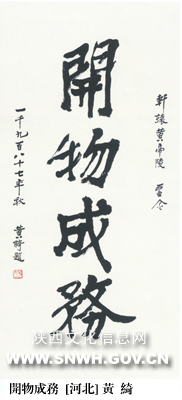 軒轅黃帝陵 留念
開物成務
一千九百八十七年秋 黃綺題
陕西文化信息网
WWW.SNWH.GOV.CN
開物成務 [河北] 黃 綺